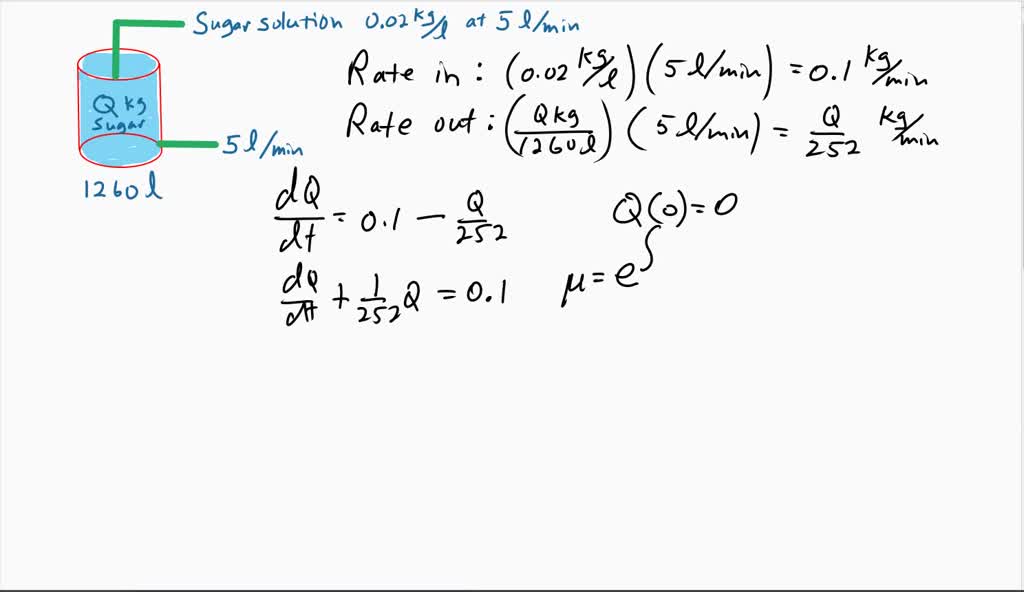 Sugar solution 0.02 kg/l at 5 l/min
Rate in : (0.02 kg/l)(5 l/min) = 0.1 kg/min
Q kg
sugar
Rate out : (Q kg/1260 l)(5 l/min) = Q/252 kg/min
5 l/min
1260 l
dQ/dt = 0.1 − Q/252
Q(0) = 0
dQ/dt + 1/252 Q = 0.1
μ = e^∫